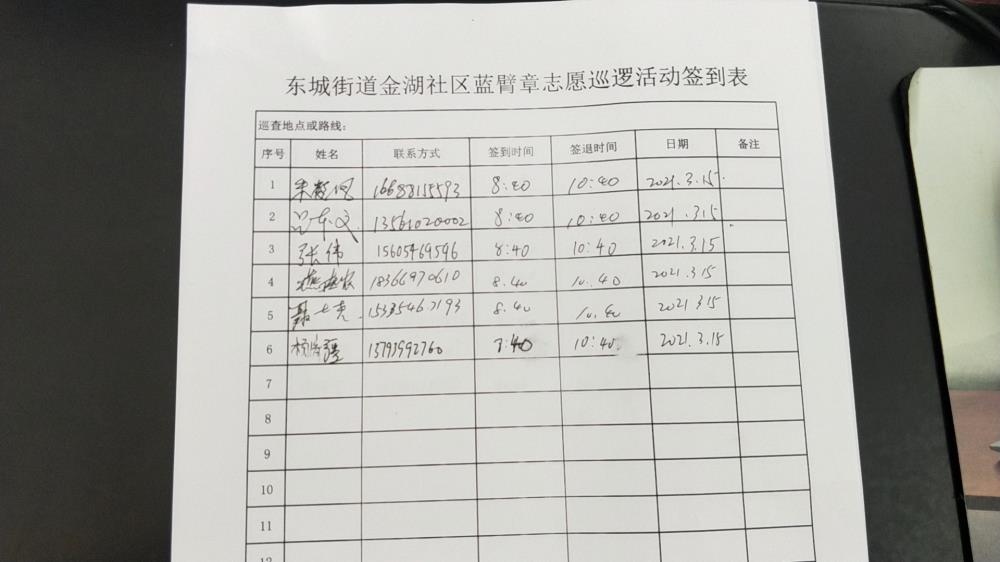 东城街道金湖社区蓝臂章志愿巡逻活动签到表
巡查地点或路线:
序号 姓名 联系方式 签到时间 签退时间 日期 备注
1 16688155593 8:40 10:40 2021.3.15.
2 13561020002 8:40 10:40 2021.315
3 张伟 15605469596 8:40 10:40 2021.3.15
4 18366970610 8.40 10.40 2021.3.15
5 8.40 10.40 2021 315
6 13793992760 10:40 2021.3.15
7
8
9
10
11
12